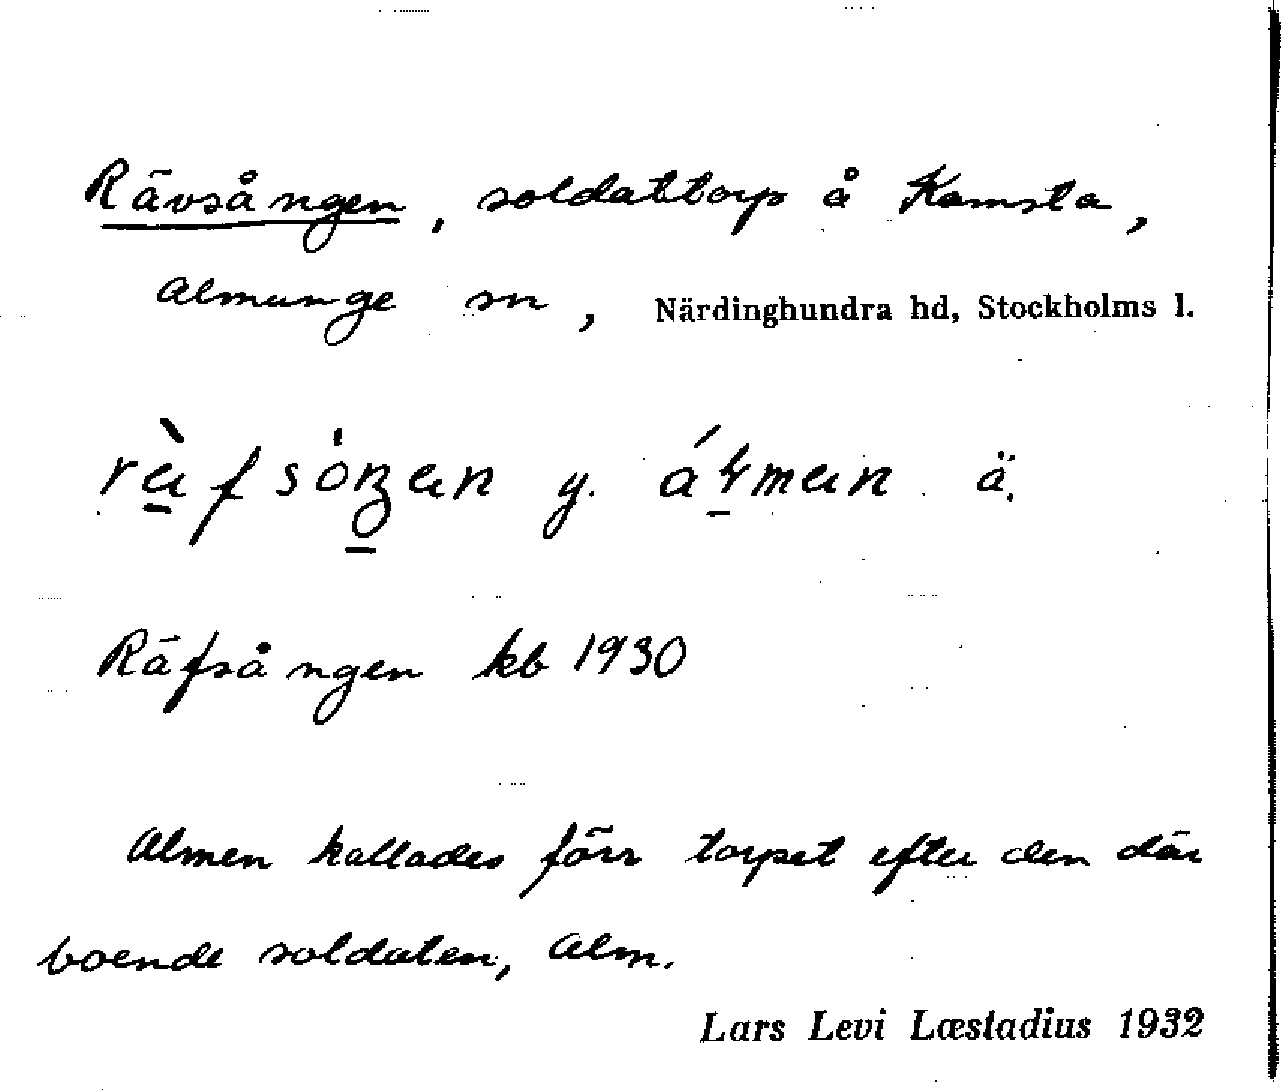 Rävsången, soldattorp å Kamsta,
Almunge sn, Närdinghundra hd, Stockholms l.
y. ä.
Räfsången kb 1930
Almen kallades förr torpet efter den där
boende soldaten, Alm.
Lars Levi Læstadius 1932